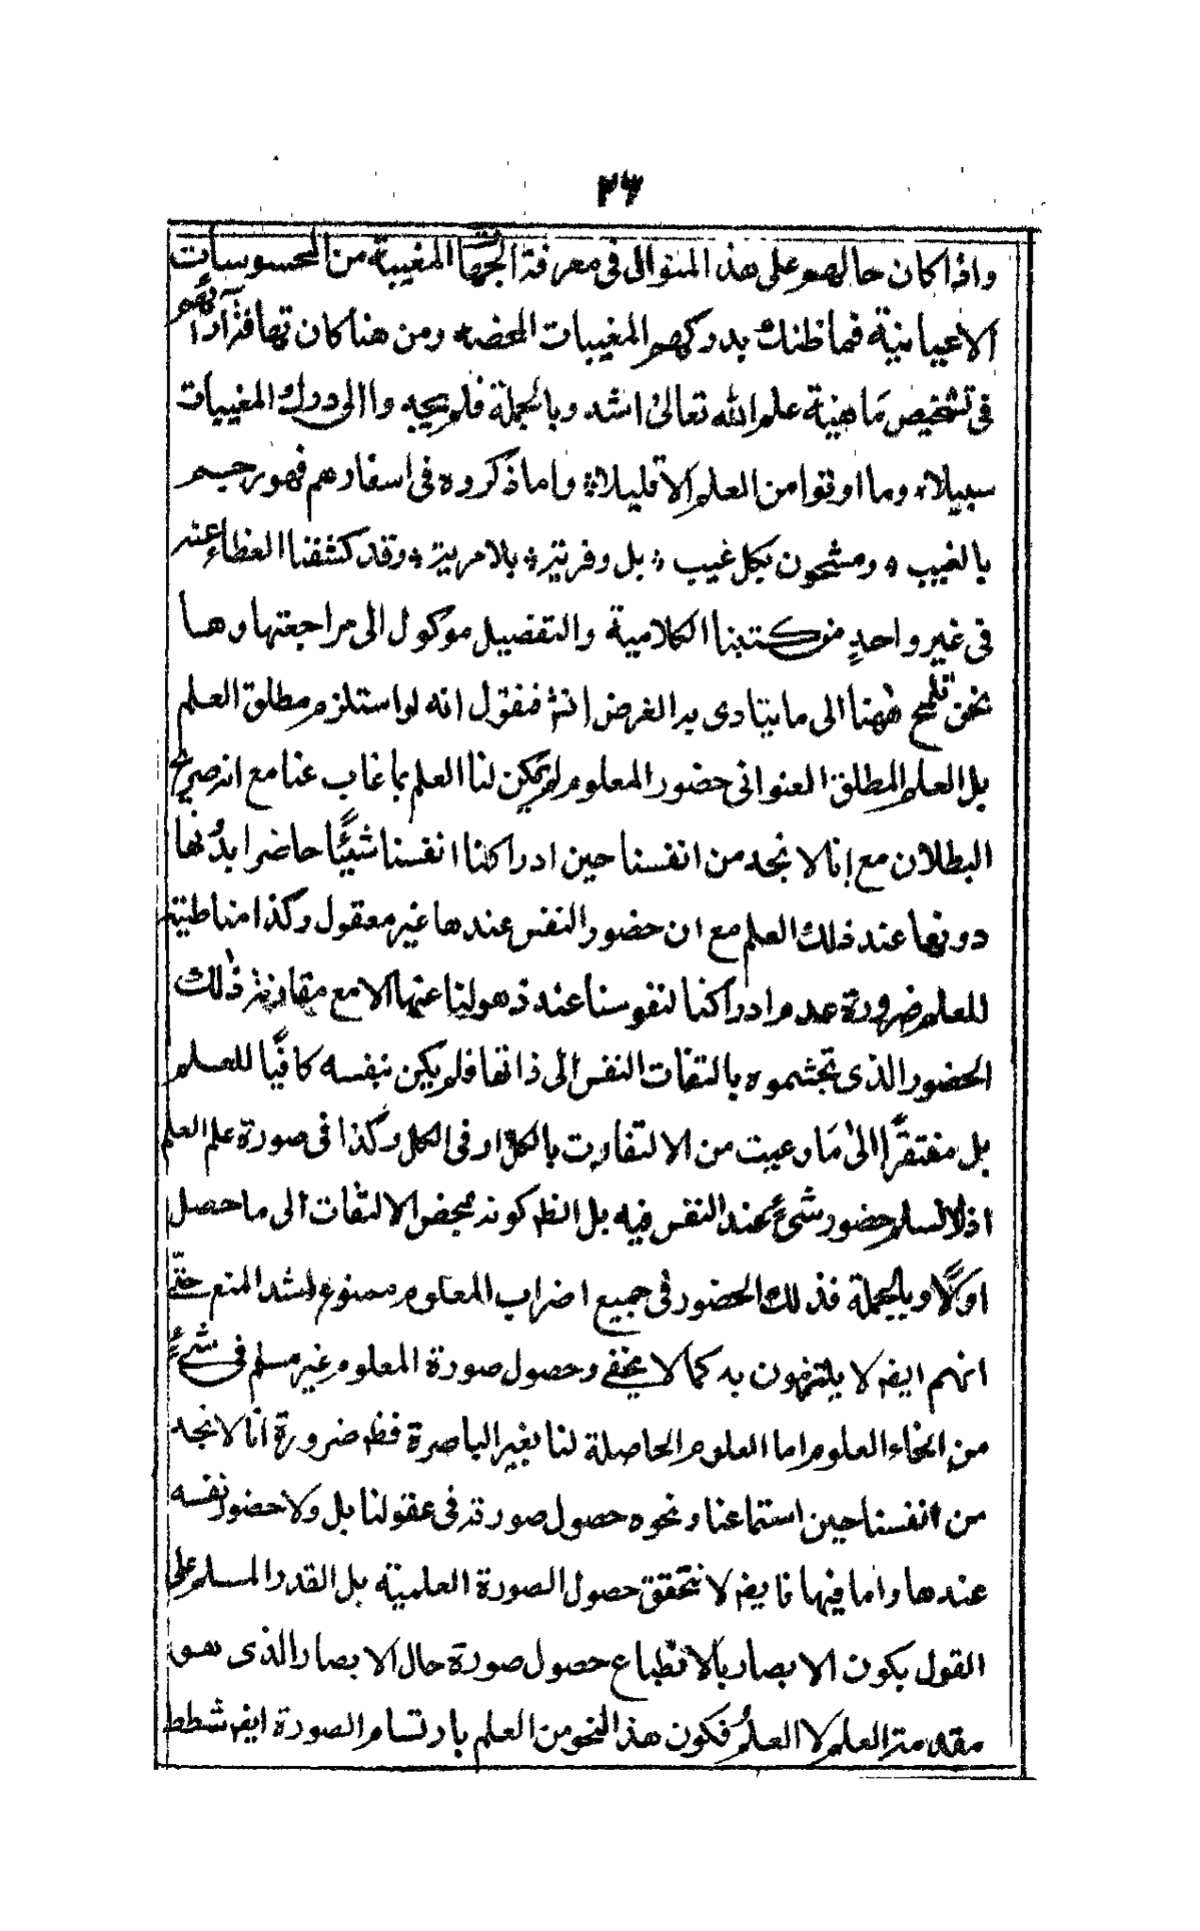 ٢٦
واذا كان حالهم على هذا المنوال فى معرفة الجهات المغيبة من المحسوسات
الاعيانية فما ظنك بدركهم المغيبات المحضة ومن هنا كان تهافة آرائهم
فى تشخيص ماهية علم الله تعالى اشد وبالجملة فلم يجدوا الى درك المغيبات
سبيلا وما اوتوا من العلم الا قليلا واما ما ذكروه فى اسفارهم فهو رجم
بالغيب ومشحون بكل عيب بل وفرية بلا مرية وقد كشفنا الغطاء عنه
فى غير واحدٍ من كتبنا الكلامية والتفصيل موكول الى مراجعتها وها
نحن نلمح ههنا الى ما يتادى به الغرض انشم فنقول انه لو استلزم مطلق العلم
بل العلم المطلق العنوانى حضور المعلوم لم يمكن لنا العلم بما غاب عنا مع انه صريح
البطلان مع إنا لا نجد من انفسنا حين ادراكنا انفسنا شيئًا حاضرا بدُنها
دونها عند ذلك العلم مع ان حضور النفس عندها غير معقول وكذا مناطيته
للعلم ضرورة عدم ادراكنا لنفوسنا عند ذهولنا عنها الا مع مقارنة ذلك
الحضور الذى تجشموه بالتفات النفس الى ذاتها فلم يكن بنفسه كافيًا للعلم
بل مفتقرًا الى ما وعيت من الالتفاوت بالكل او فى الكل وكذا فى صورة علم العلم
اذ لا نسلم حضور شئ عند النفس فيه بل الظ كونه محض الالتفات الى ما حصل
اوّلًا وبالجملة فذلك الحضور فى جميع اضراب المعلوم ممنوع اشد المنع حتّى
انهم ايض لا يلتزمون به كما لا يخفى وحصول صورة المعلوم غير مسلم فى شئ
من انحاء العلوم اما العلوم الحاصلة لنا بغير الباصرة فظ ضرورة انا لا نجد
من انفسنا حين استماعنا ونحوه حصول صورته فى عقولنا بل ولا حضور نفسه
عندها واما فيها فايض لا نتحقق حصول الصورة العلمية بل القدر المسلم على
القول بكون الابصار بالانطباع حصول صورة حال الابصار الذى هو
مقدمة العلم لا العلم فكون هذا النحو من العلم بارتسام الصورة ايض شطط